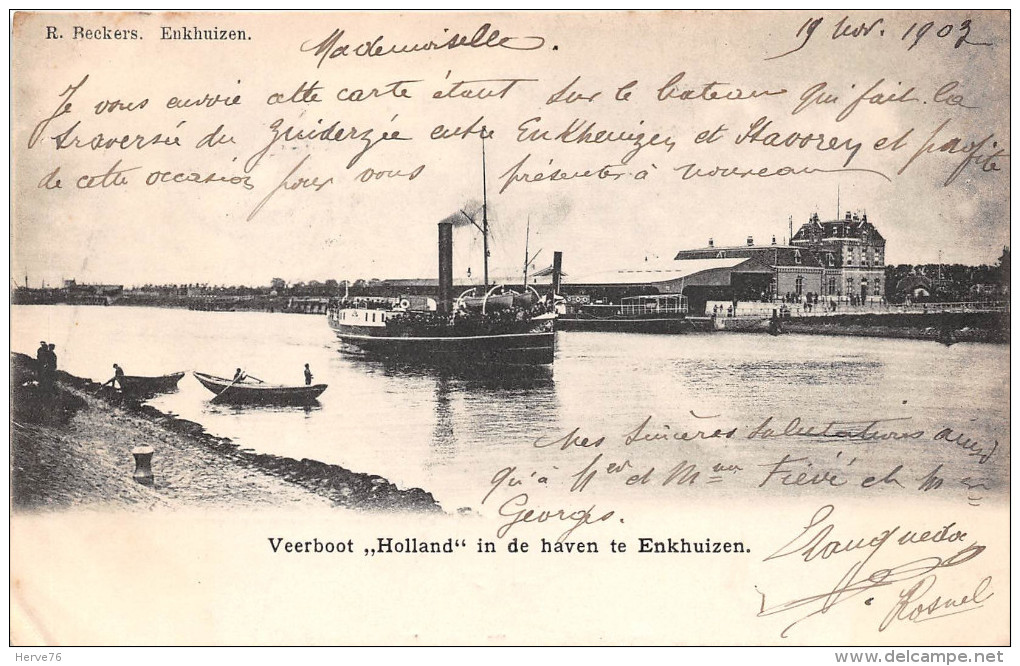 R. Beckers. Enkhuizen.
19 Nov. 1903
Mademoiselle.
Je vous envoie cette carte étant sur le bateau qui fait la
traversée du Zuiderzée entre Enkheuizen et Stavoren et profite
de cette occasion pour vous présenter à nouveau
mes sincères salutations ainsi
qu'à et Mme Fiévé et
Georges.
Veerboot „Holland" in de haven te Enkhuizen.
Rosnel
Herve76
www.delcampe.net